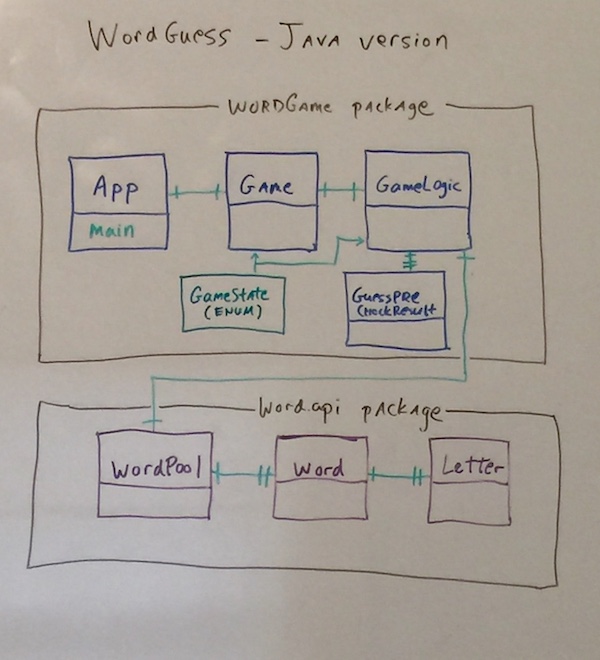 WordGuess - Java version
WORDGame package
App
Main
Game
GameLogic
GameState
(ENUM)
GuessPRE
CheckResult
Word.api package
WordPool
Word
Letter